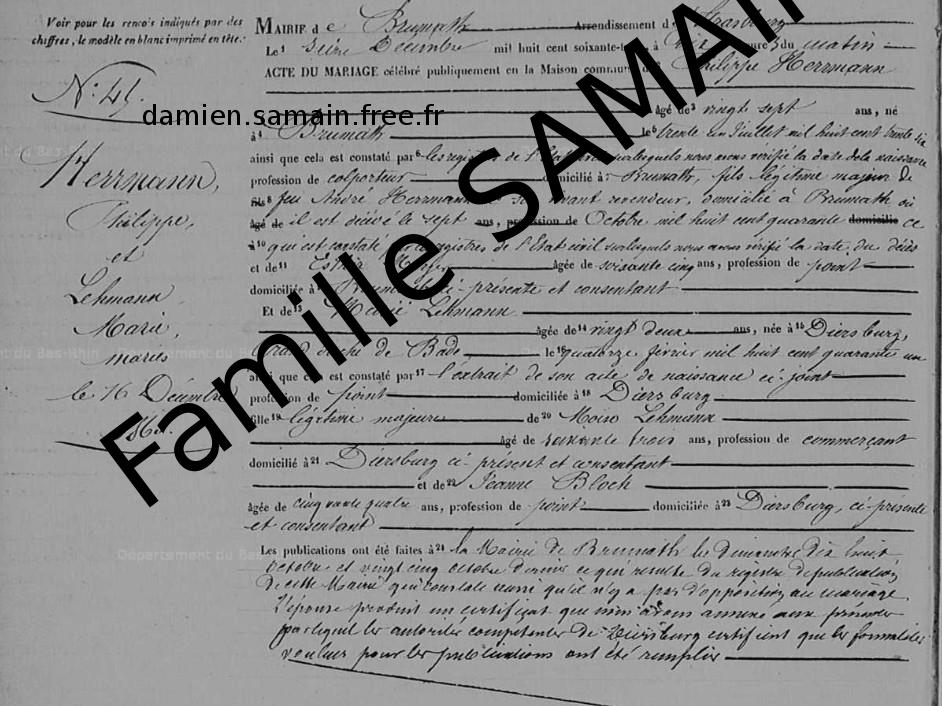 Voir pour les renvois indiqués par des
chiffres, le modèle en blanc imprimé en tête.
N.° 41.
damien.samain.free.fr
Famille SAMAIN
Herrmann,
Philippe,
et
Lehmann
Marie,
mariés
le 16 Décembre
MAIRIE de Brumath Arrondissement de Strasbourg
Le seize Décembre mil huit cent soixante- à dix heures du matin
ACTE DU MARIAGE célébré publiquement en la Maison commune de Philippe Herrmann
âgé de vingt sept ans, né
à Brumath le trente un Juillet mil huit cent trente six
ainsi que cela est constaté par les registres de l'Etat civil sur lesquels nous avons vérifié la date de la naissance
profession de colporteur domicilié à Brumath, fils légitime majeur de
fils feu André Herrmann de son vivant revendeur, domicilié à Brumath où
âgé de il est décédé le sept ans, profession de Octobre mil huit cent quarante domicilié ce
à qui est constaté registres de l'Etat civil sur lesquels nous avons vérifié la date du décès
et de Esther âgée de soixante cinq ans, profession de point
domiciliée à Brumath ci-présente et consentant
Et de Marie Lehmann
âgée de vingt deux ans, née à Diersburg,
Grand duché de Bade le quatorze février mil huit cent quarante un
ainsi que cela est constaté par l'extrait de son acte de naissance ci-joint
profession de point domiciliée à Diersburg
fille légitime majeure de Moïse Lehmann
âgé de soixante trois ans, profession de commerçant
domicilié à Diersburg ci-présent et consentant
et de Jeanne Bloch
âgée de cinquante quatre ans, profession de point domiciliée à Diersburg, ci-présente
et consentant
Les publications ont été faites à la Mairie de Brumath les dimanches dix huit
octobre et vingt cinq octobre dernier ce qui résulte du registre de publications
de cette Mairie qui constate aussi qu'il n'y a pas d'opposition au mariage.
L'épouse produit un certificat que nous avons annexé aux présentes
par lequel les autorités compétentes de Diersburg certifient que les formalités
voulues pour les publications ont été remplies
Département du Bas-Rhin